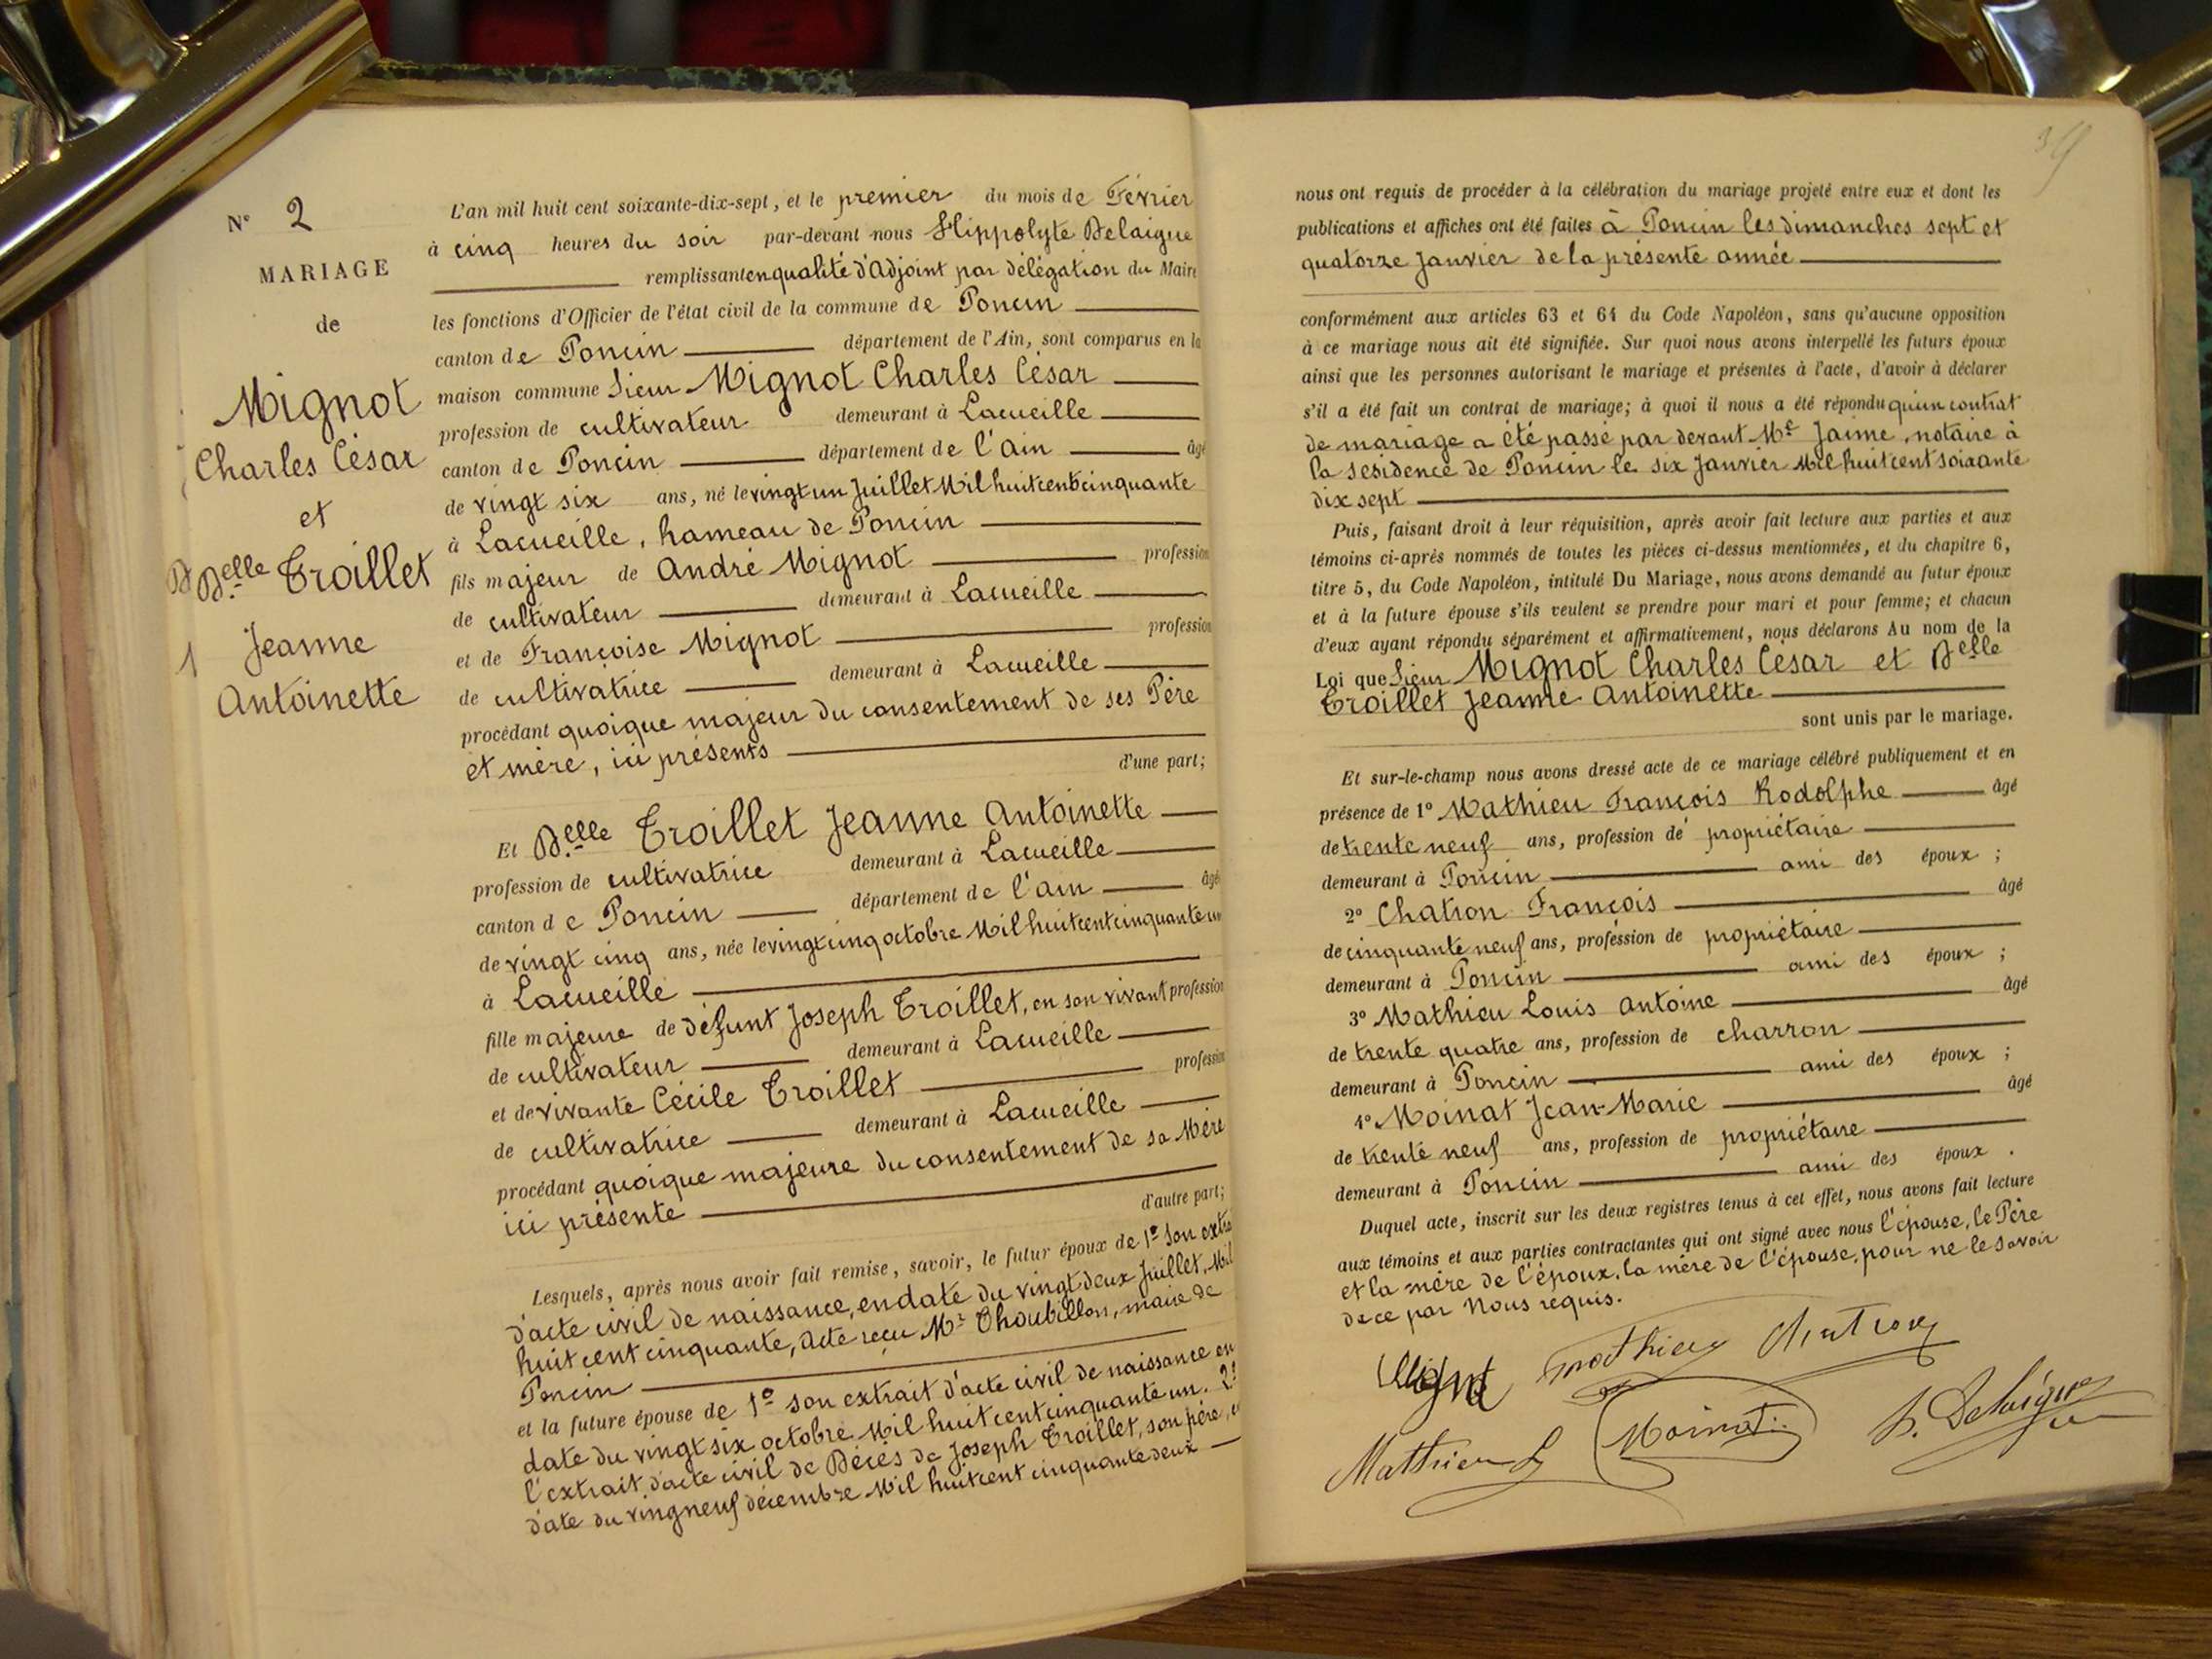 N° 2
MARIAGE
de
Mignot
Charles César
et
Delle Troillet
Jeanne
Antoinette
L'an mil huit cent soixante-dix-sept, et le premier du mois de Février
à cinq heures du soir par-devant nous Hippolyte Delaigue
remplissant en qualité d'Adjoint par délégation du Maire
les fonctions d'Officier de l'état civil de la commune de Poncin
canton de Poncin département de l'Ain, sont comparus en la
maison commune Sieur Mignot Charles César
profession de cultivateur demeurant à Lacueille
canton de Poncin département de l'Ain âgé
de vingt six ans, né le vingt un Juillet Mil huit cent cinquante
à Lacueille, hameau de Poncin
fils majeur de André Mignot profession
de cultivateur demeurant à Lacueille
et de Françoise Mignot profession
de cultivatrice demeurant à Lacueille
procédant quoique majeur du consentement de ses Père
et mère, ici présents
d'une part;
Et Delle Troillet Jeanne Antoinette
profession de cultivatrice demeurant à Lacueille
canton de Poncin département de l'Ain âgé
de vingt cinq ans, née le vingt cinq octobre Mil huit cent cinquante un
à Lacueille
fille majeure de défunt Joseph Troillet, en son vivant profession
de cultivateur demeurant à Lacueille
et de vivante Cécile Troillet profession
de cultivatrice demeurant à Lacueille
procédant quoique majeure du consentement de sa Mère
ici présente
d'autre part;
Lesquels, après nous avoir fait remise, savoir, le futur époux de 1° Son extra
d'acte civil de naissance, en date du vingt deux Juillet, Mil
huit cent cinquante, acte reçu Mr Thoubillon, maire de
Poncin
et la future épouse de 1° son extrait d'acte civil de naissance en
date du vingt six octobre Mil huit cent cinquante un. 2°
l'extrait d'acte civil de Décès de Joseph Troillet, son père, en
date du vingneuf décembre Mil huit cent cinquante deux
39
nous ont requis de procéder à la célébration du mariage projeté entre eux et dont les
publications et affiches ont été faites à Poncin les dimanches sept et
quatorze Janvier de la présente année
conformément aux articles 63 et 64 du Code Napoléon, sans qu'aucune opposition
à ce mariage nous ait été signifiée. Sur quoi nous avons interpellé les futurs époux
ainsi que les personnes autorisant le mariage et présentes à l'acte, d'avoir à déclarer
s'il a été fait un contrat de mariage; à quoi il nous a été répondu qu'un contrat
de mariage a été passé par devant Me Jaime, notaire à
la résidence de Poncin le six Janvier Mil huit cent soixante
dix sept
Puis, faisant droit à leur réquisition, après avoir fait lecture aux parties et aux
témoins ci-après nommés de toutes les pièces ci-dessus mentionnées, et du chapitre 6,
titre 5, du Code Napoléon, intitulé Du Mariage, nous avons demandé au futur époux
et à la future épouse s'ils veulent se prendre pour mari et pour femme; et chacun
d'eux ayant répondu séparément et affirmativement, nous déclarons Au nom de la
Loi que Sieur Mignot Charles César et Delle
Troillet Jeanne Antoinette
sont unis par le mariage.
Et sur-le-champ nous avons dressé acte de ce mariage célébré publiquement et en
présence de 1° Mathieu François Rodolphe âgé
de trente neuf ans, profession de propriétaire
demeurant à Poncin ami des époux ;
2° Chatron François âgé
de cinquante neuf ans, profession de propriétaire
demeurant à Poncin ami des époux ;
3° Mathieu Louis Antoine âgé
de trente quatre ans, profession de charron
demeurant à Poncin ami des époux ;
4° Moinat Jean-Marie âgé
de trente neuf ans, profession de propriétaire
demeurant à Poncin ami des époux .
Duquel acte, inscrit sur les deux registres tenus à cet effet, nous avons fait lecture
aux témoins et aux parties contractantes qui ont signé avec nous l'épouse, le Père
et la mère de l'époux, la mère de l'épouse, pour ne le savoir
de ce par Nous requis.
Mignot Mathieu Chatron
Mathieu L Moinat H. Delaigue